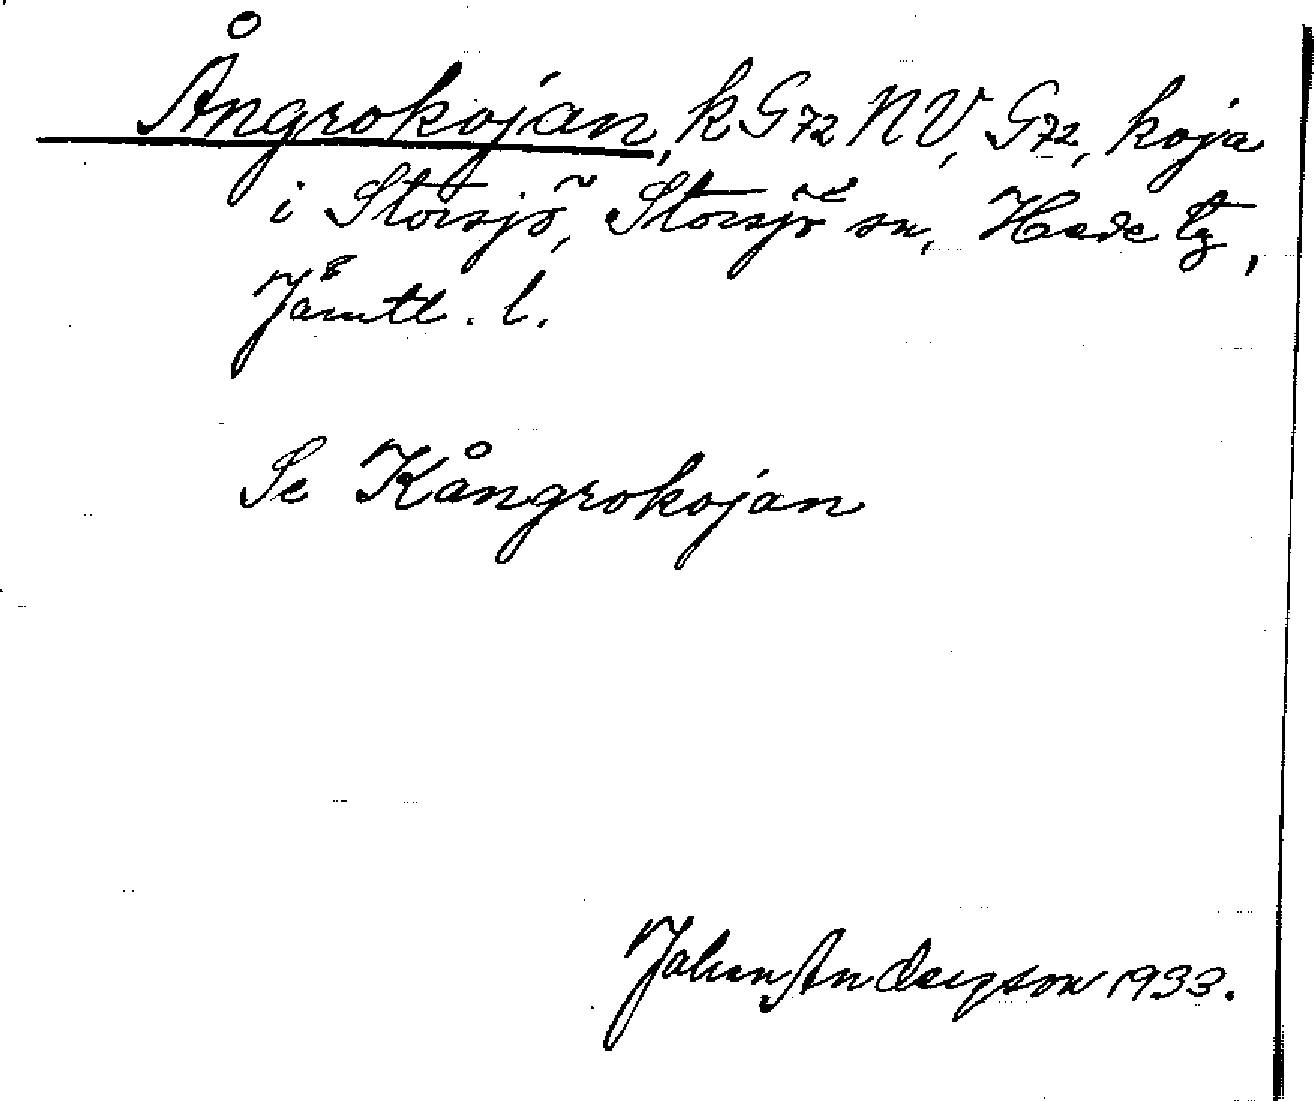 Ångrokojan, k G72 NV, G72, koja
i Storsjö, Storsjö sn, Hede tg,
Jämtl. l.
Se Kångrokojan
Johan Andersson 1933.